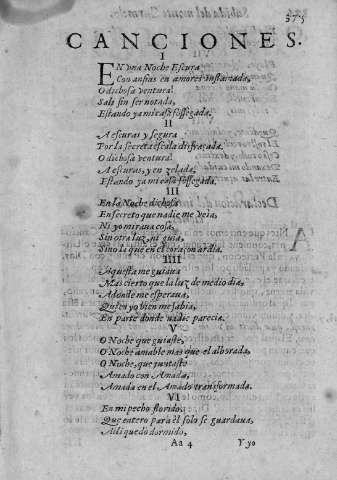 375
CANCIONES.
I
EN vna Noche Escura
Con ansias en amores inflamada,
O dichosa ventura!
Sali sin ser notada,
Estando ya mi casa sossegada.
II
A escuras y segura
Por la secreta escala disfraçada.
O dichosa ventura!
A escuras, y en zelada.
Estando ya mi casa sossegada.
III
En la Noche dichosa
En secreto que nadie me veia,
Ni yo miraua cosa,
Sin otra luz, ni guia,
Sino la que en el coraçon ardia.
IIII
Aquesta me guiaua
Mas cierto que la luz de medio dia,
Adonde me esperaua,
Quien yo bien me sabia,
En parte donde nadie parecia.
V
O Noche que guiaste,
O Noche amable mas que el alborada,
O Noche, que juntaste
Amado con Amada,
Amada en el Amado transformada.
VI
En mi pecho florido,
Que entero para èl solo se guardaua,
Alli quedo dormido,
Aa 4 Y yo